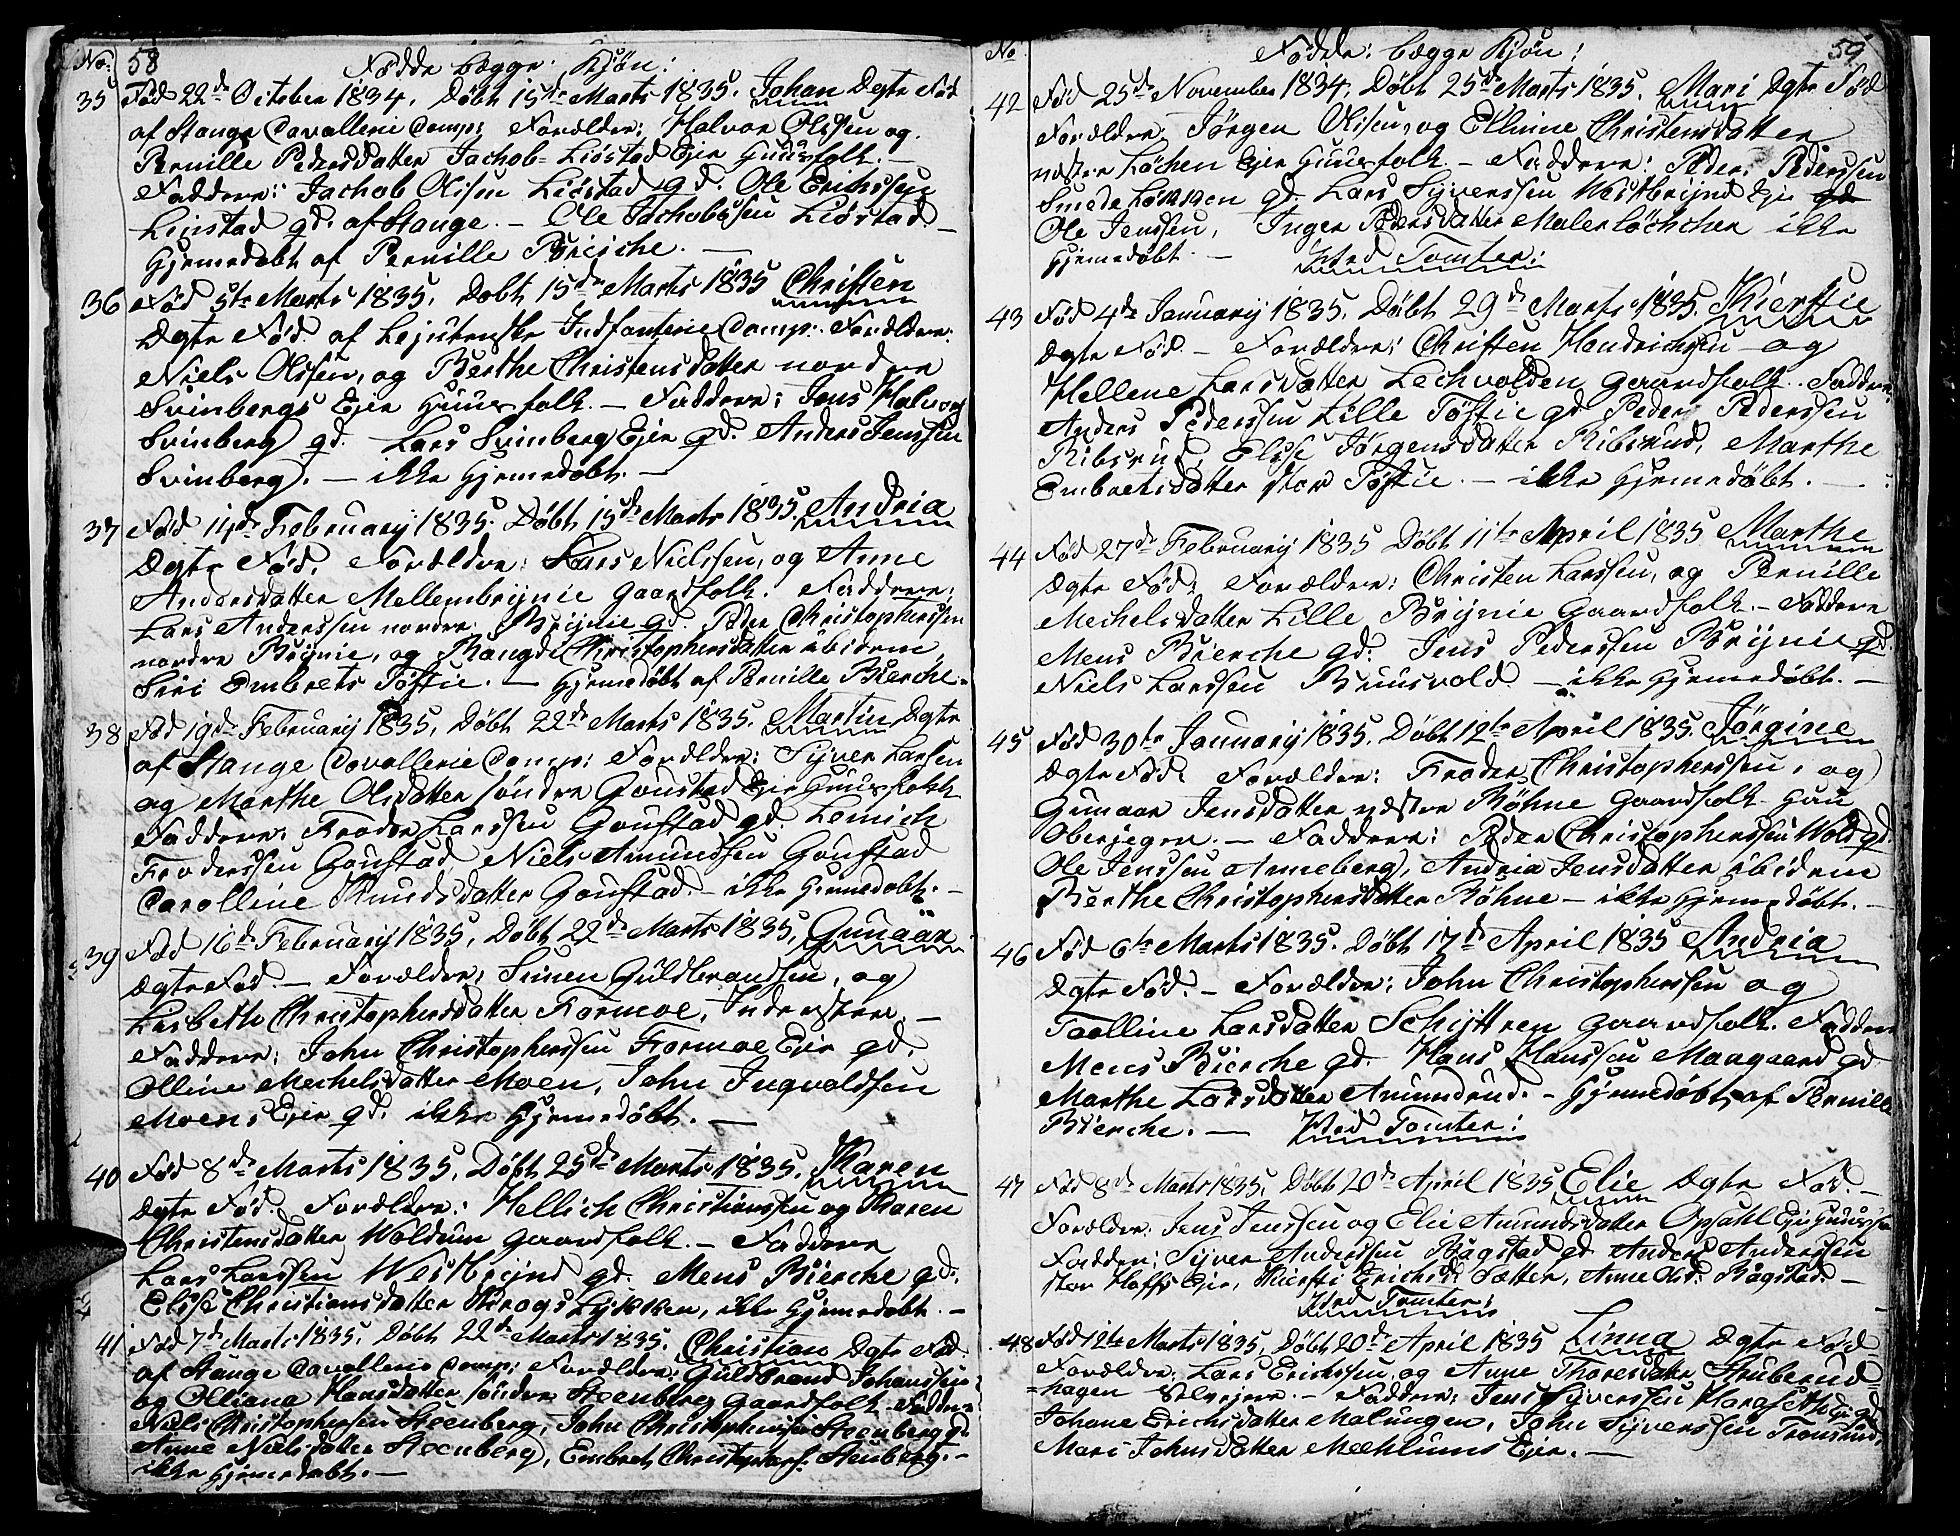 No: 58
Fødde begge: Kjøn:
35 Fød 22de October 1834. Døbt 15de Marts 1835. Johan Dgte Fød
af Stange Cavallerie Comp: Forældre: Halvor Olssen og
Pernille Pedersdatter Jachob-Liøstad Ejer Huusfolk. —
Faddere: Jachob Olssen Liøstad gd. Ole Erichssen
Linstad gd. af Stange. — Ole Jachobssen Liøstad. —
Hjemedøbt af Pernille Bierche. —
36 Fød 5te Marts 1835. Døbt 15de Marts 1835 Christen
Dgte Fød. af Lejutenske Indfanterie Comp: Forældre:
Niels Olssen, og Berthe Christensdatter nordre
Svinbergs Ejer Huusfolk. — Faddere: Jens Halvors
Svinberg gd. Lars Svinberg Ejer gd. Anders Jenssen
Svinberg. — ikke Hjemedøbt. —
37 Fød 14de February 1835. Døbt 15de Marts 1835. Andria
Dgte Fød. Forældre: Lars Nielssen, og Anne
Andersdatter Mellembrynie Gaardfolk. Faddere:
Lars Anderssen nordre Brynie gd. Peder Christopherssen
nordre Brynie, og Rangdi Christophersdatter ibidem,
Siri Embrets Tøftie. — Hjemedøbt af Pernille Bierche.
38 Fød 19de February 1835. Døbt 22de Marts 1835. Martin Dgte
af Stange Cavallerie Comp: Forældre: Syver Larssen
og Marthe Olsdatter søndre Goustad Ejer Huusfolk
Faddere: Froder Larssen Goustad gd. Lemich
Froderssen Goustad Niels Amundssen Goustad
Carolline Knudsdatter Goustad. — ikke Hjemedøbt. —
39 Fød 16de February 1835, Døbt 22de Marts 1835, Gunaar
Dgte Fød. — Forældre: Simen Guldbrandssen, og
Lisbeth Christophersdatter Formoe, Inderstere. —
Faddere: John Christopherssen Formoe Ejer gd.
Olline Mechelsdatter Moen, John Ingvoldssen
Moens Ejer gd. ikke Hjemedøbt. —
40 Fød 8de Marts 1835. Døbt 25de Marts 1835. Karen
Dgte Fød. Forældre: Hellich Christianssen og Karen
Christensdatter Woldum Gaardfolk. — Faddere
Lars Larssen Westbrynd gd. Mens Bierche gd.
Elisse Christiansdatter Krogs Lykken, ikke Hjemedøbt. —
41 Fød 7de Marts 1835. Døbt 22de Marts 1835. Christian Dgte Fød
af Stange Cavallerie Comp: Forældre: Guldbrand Johanssen
og Olliana Hansdatter søndre Steenberg Gaardfolk Faddere
Niels Christopherssen Steenberg, John Christopherssen Steenberg gd
Anne Nielsdatter Steenberg, Embret Christophers: Steenberg. —
ikke Hjemedøbt. —
No 59
Fødde: begge Kjøn:
42 Fød 25de November 1834. Døbt 25de Marts 1835. Mari Dgte Fød
Forældre. Jørgen Olssen, og Ellinne Christensdatter
Løchen Ejer Huusfolk. — Faddere: Peder Pederssen
Smede gd. Lars Syverssen Westbrynd Ejer gd
Ole Jenssen, Inger Pedersdatter Malerløchchen ikke
Hjemedøbt. — Ved Tomter:
43 Fød 4de January 1835. Døbt 29de Marts 1835. Kierstie
Dgte Fød. — Forældre: Christen Hendrichssen og
Hellene Larsdatter Lechvolden Gaardfolk. Faddere:
Anders Pederssen Lille Tøftie gd Peder Pederssen
Ribsrud, Elise Jørgensdatter Ribsrud, Marthe
Embretsdatter stor Tøftie. — ikke Hjemedøbt. —
44 Fød 27de February 1835 Døbt 11te April 1835 Marthe
Dgte Fød. Forældre: Christen Larssen, og Pernille
Mechelsdatter Lille Brynie Gaardfolk. — Faddere
Mens Bierche gd. Jens Pederssen Brynie gd.
Niels Larssen Bruusvold — ikke Hjemedøbt. —
45 Fød 30te January 1835. Døbt 12te April 1835. Jørgine
Dgte Fød. Forældre: Froder Christopherssen, og
Gunaar Jensdatter vestre Røhne Gaardfolk
Oberjegere. — Faddere: Peder Christopherssen Wold gd.
Ole Jenssen Anneberg, Andria Jensdatter ibidem
Berthe Christophersdatter Røhne — ikke Hjemedøbt. —
46 Fød 6te Marts 1835. Døbt 17de April 1835 Andria
Dgte Fød. — Forældre: John Christopherssen og
Larsdatter Schyttren Gaardfolk. Faddere
Mens Bierche gd. Hans Hanssen Mangaard gd
Marthe Larsdatter Amundrud. — Hjemedøbt af Pernille
Bierche. — Ved Tomter:
47 Fød 8de Marts 1835. Døbt 20de April 1835 Elie Dgte Fød. —
Forældre: Jens Jenssen og Elie Amundsdatter Opsahl Ejer Huusfolk
Faddere: Syver Anderssen Bagstad gd Anders Anderssen
stor Hoffs Ejer, Kiersti Erichsd: Sætter, Anne Olsd: Bagstad. —
Ved Tomter:
48 Fød 12te Marts 1835, Døbt 20de April 1835 Linna Dgte Fød
Forældre: Lars Erichssen, og Anne Thoresdatter Struberud
-hagen Selvejere. — Faddere: Jens Syverssen Haraseth Ejer gd.
Johane Erichsdatter Malungen, John Syverssen
Mari Johnsdatter Mæhlums Ejer. —